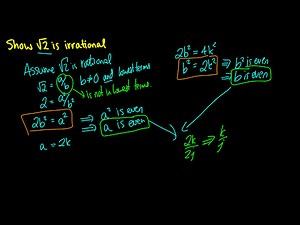 Show √2 is irrational
Assume √2 is rational
√2 = a/b b≠0 and lowest terms
is not in lowest terms.
2 = a²/b²
2b² = a² ⇒ a² is even
⇒ a is even
a = 2k
2b² = 4k²
b² = 2k² ⇒ b² is even
⇒ b is even
2k/2j ⇒ k/j